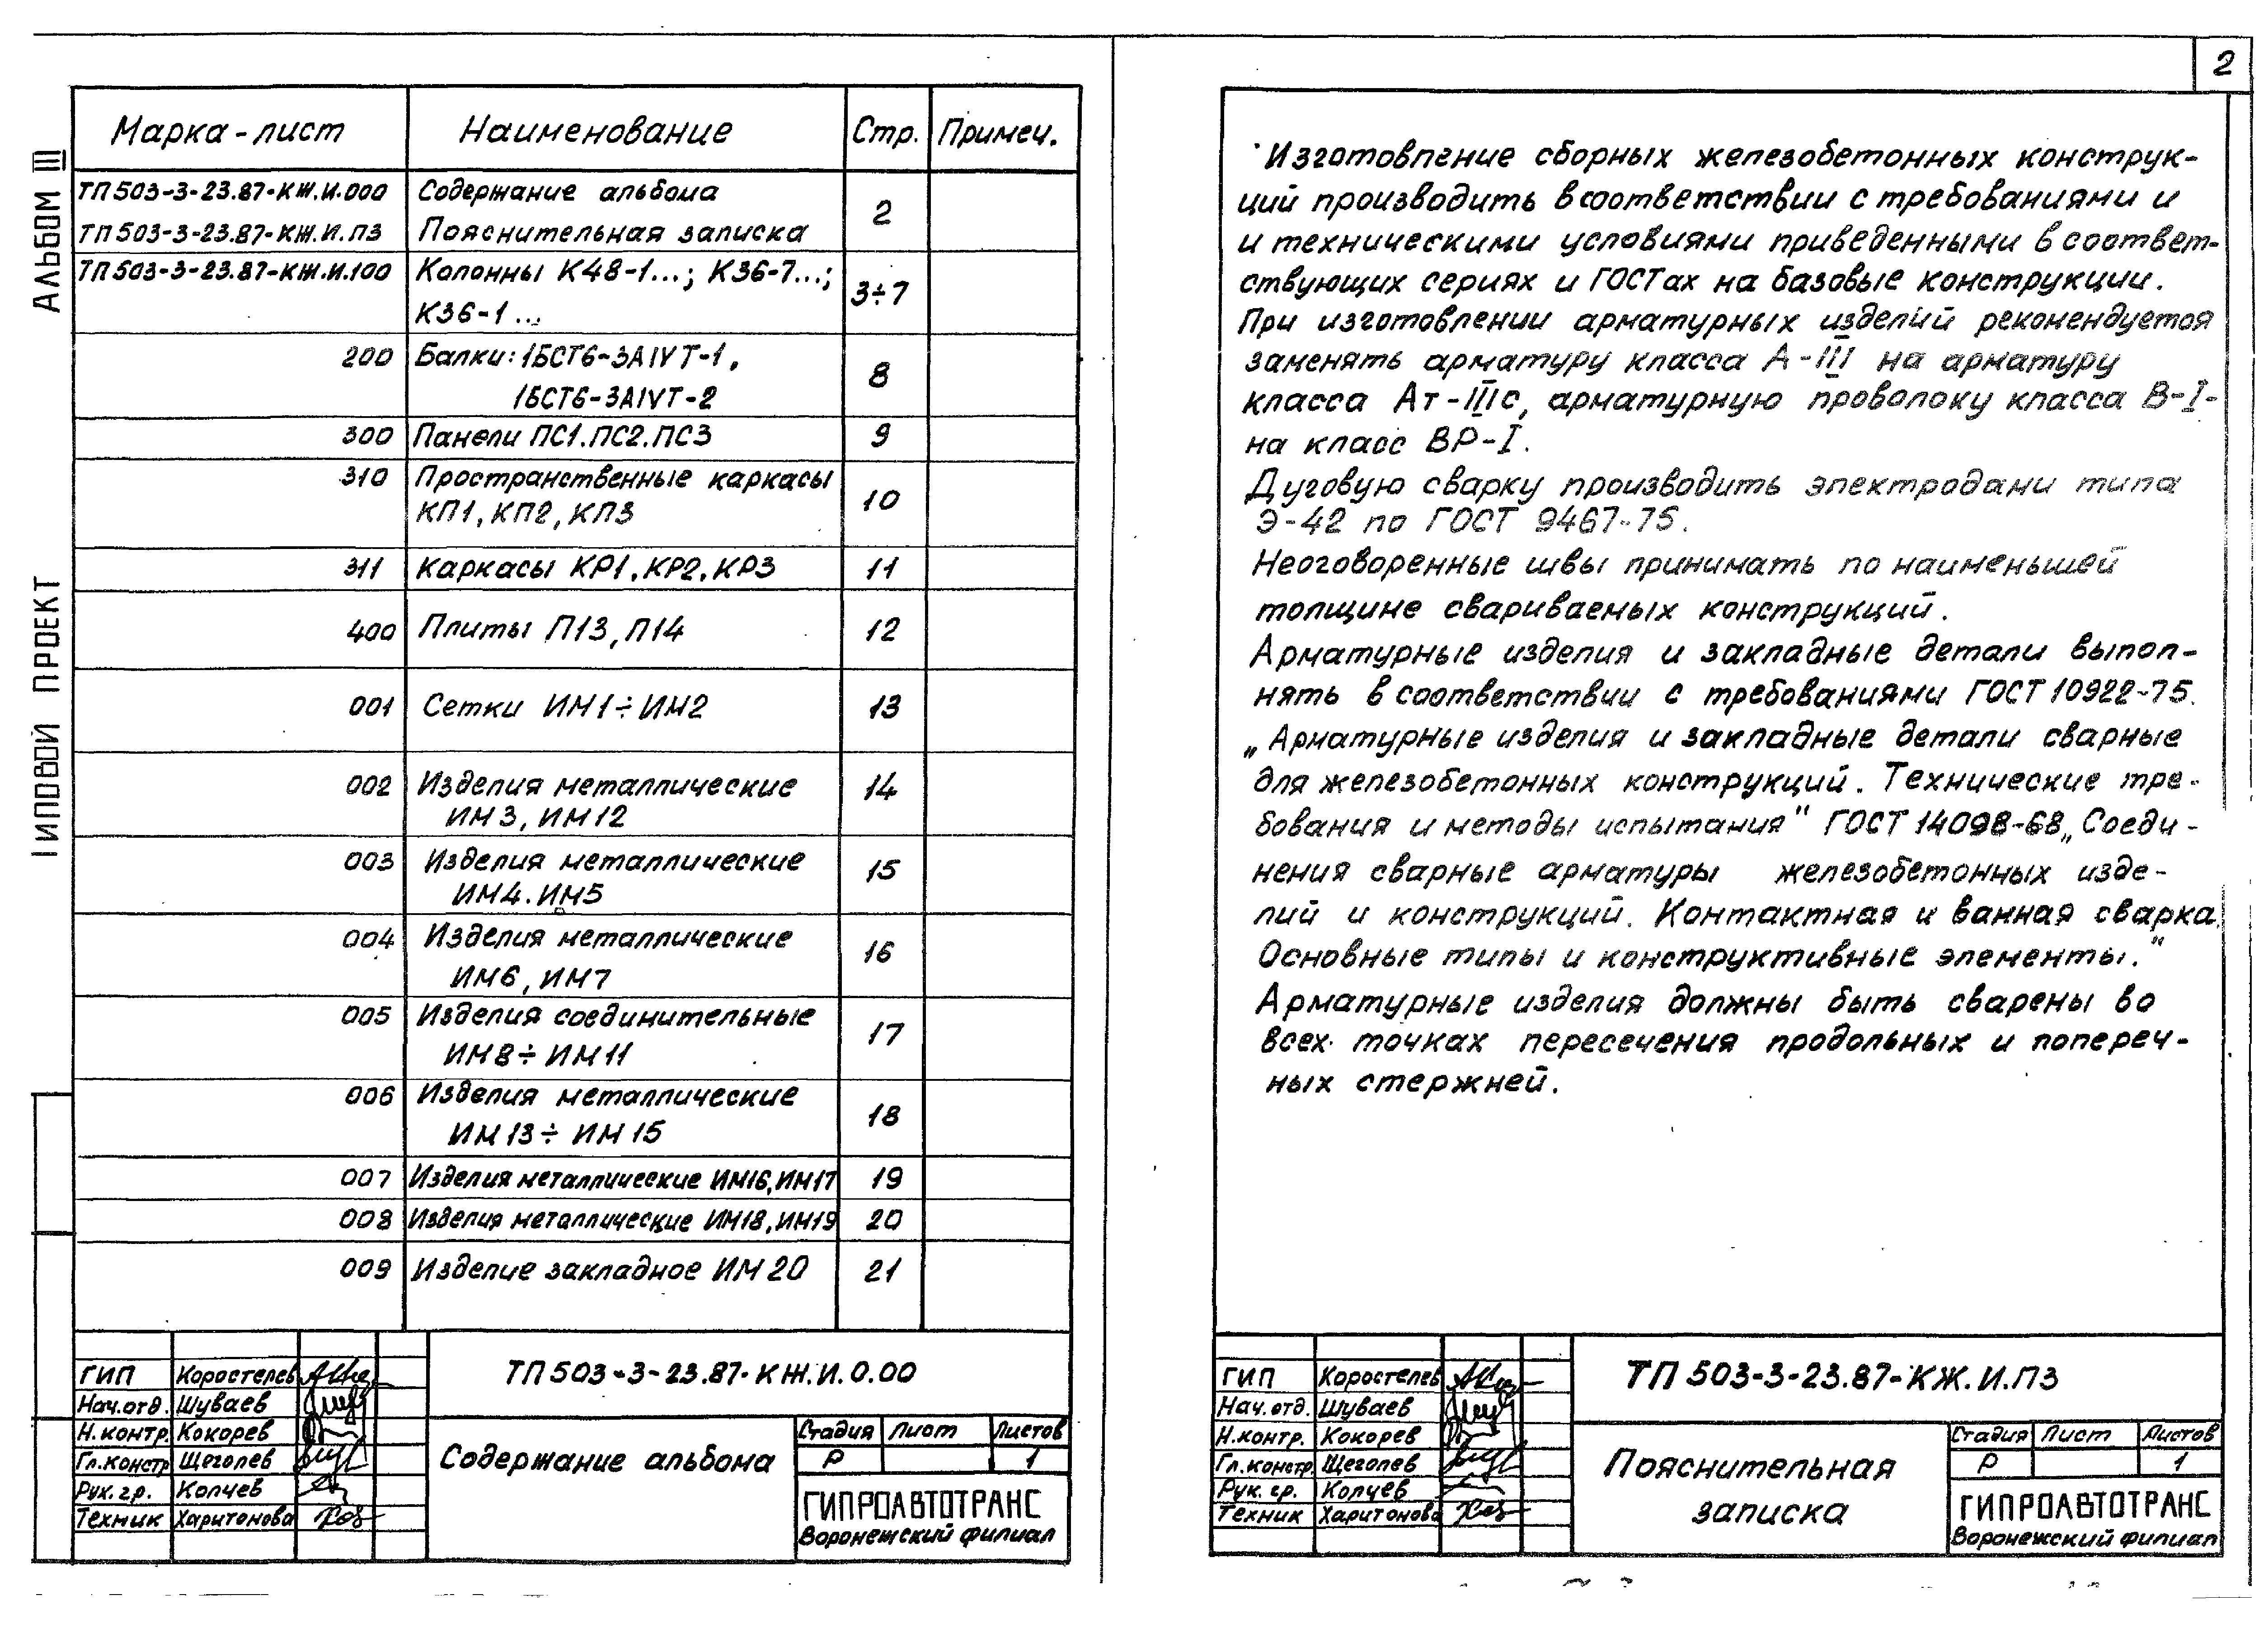 2
АЛЬБОМ III
ТИПОВОЙ ПРОЕКТ
Марка-лист Наименование Стр. Примеч.
ТП503-3-23.87-КЖ.И.000 Содержание альбома
2
ТП503-3-23.87-КЖ.И.ПЗ Пояснительная записка
ТП503-3-23.87-КЖ.И.100 Колонны К48-1...; К36-7...;
3÷7
К36-1...
200 Балки: 1БСТ6-3АIVТ-1,
8
1БСТ6-3АIVТ-2
300 Панели ПС1.ПС2.ПС3 9
310 Пространственные каркасы
10
КП1, КП2, КП3
311 Каркасы КР1, КР2, КР3 11
400 Плиты П13, П14 12
001 Сетки ИМ1÷ИМ2 13
002 Изделия металлические 14
ИМ3, ИМ12
003 Изделия металлические 15
ИМ4. ИМ5
004 Изделия металлические 16
ИМ6, ИМ7
005 Изделия соединительные 17
ИМ8÷ИМ11
006 Изделия металлические 18
ИМ13÷ИМ15
007 Изделия металлические ИМ16, ИМ17 19
008 Изделия металлические ИМ18, ИМ19 20
009 Изделие закладное ИМ20 21
ГИП Коростелев
Нач.отд. Шуваев
Н.контр. Кокорев
Гл.констр Щеголев
Рук.гр. Колчев
Техник Харитонова
ТП503-3-23.87-КЖ.И.0.00
Содержание альбома
Стадия Лист Листов
Р 1
ГИПРОАВТОТРАНС
Воронежский филиал
Изготовление сборных железобетонных конструк-
ций производить в соответствии с требованиями и
и техническими условиями приведенными в соответ-
ствующих сериях и ГОСТах на базовые конструкции.
При изготовлении арматурных изделий рекомендуется
заменять арматуру класса А-III на арматуру
класса Ат-IIIс, арматурную проволоку класса В-I-
на класс ВР-I.
Дуговую сварку производить электродами типа
Э-42 по ГОСТ 9467-75.
Неоговоренные швы принимать по наименьшей
толщине свариваемых конструкций.
Арматурные изделия и закладные детали выпол-
нять в соответствии с требованиями ГОСТ 10922-75.
„Арматурные изделия и закладные детали сварные
для железобетонных конструкций. Технические тре-
бования и методы испытания" ГОСТ 14098-68 „Соеди-
нения сварные арматуры железобетонных изде-
лий и конструкций. Контактная и ванная сварка.
Основные типы и конструктивные элементы."
Арматурные изделия должны быть сварены во
всех точках пересечения продольных и попереч-
ных стержней.
ГИП Коростелев
Нач.отд. Шуваев
Н.контр. Кокорев
Гл.констр Щеголев
Рук.гр. Колчев
Техник Харитонова
ТП503-3-23.87-КЖ.И.ПЗ
Пояснительная
записка
Стадия Лист Листов
Р 1
ГИПРОАВТОТРАНС
Воронежский филиал